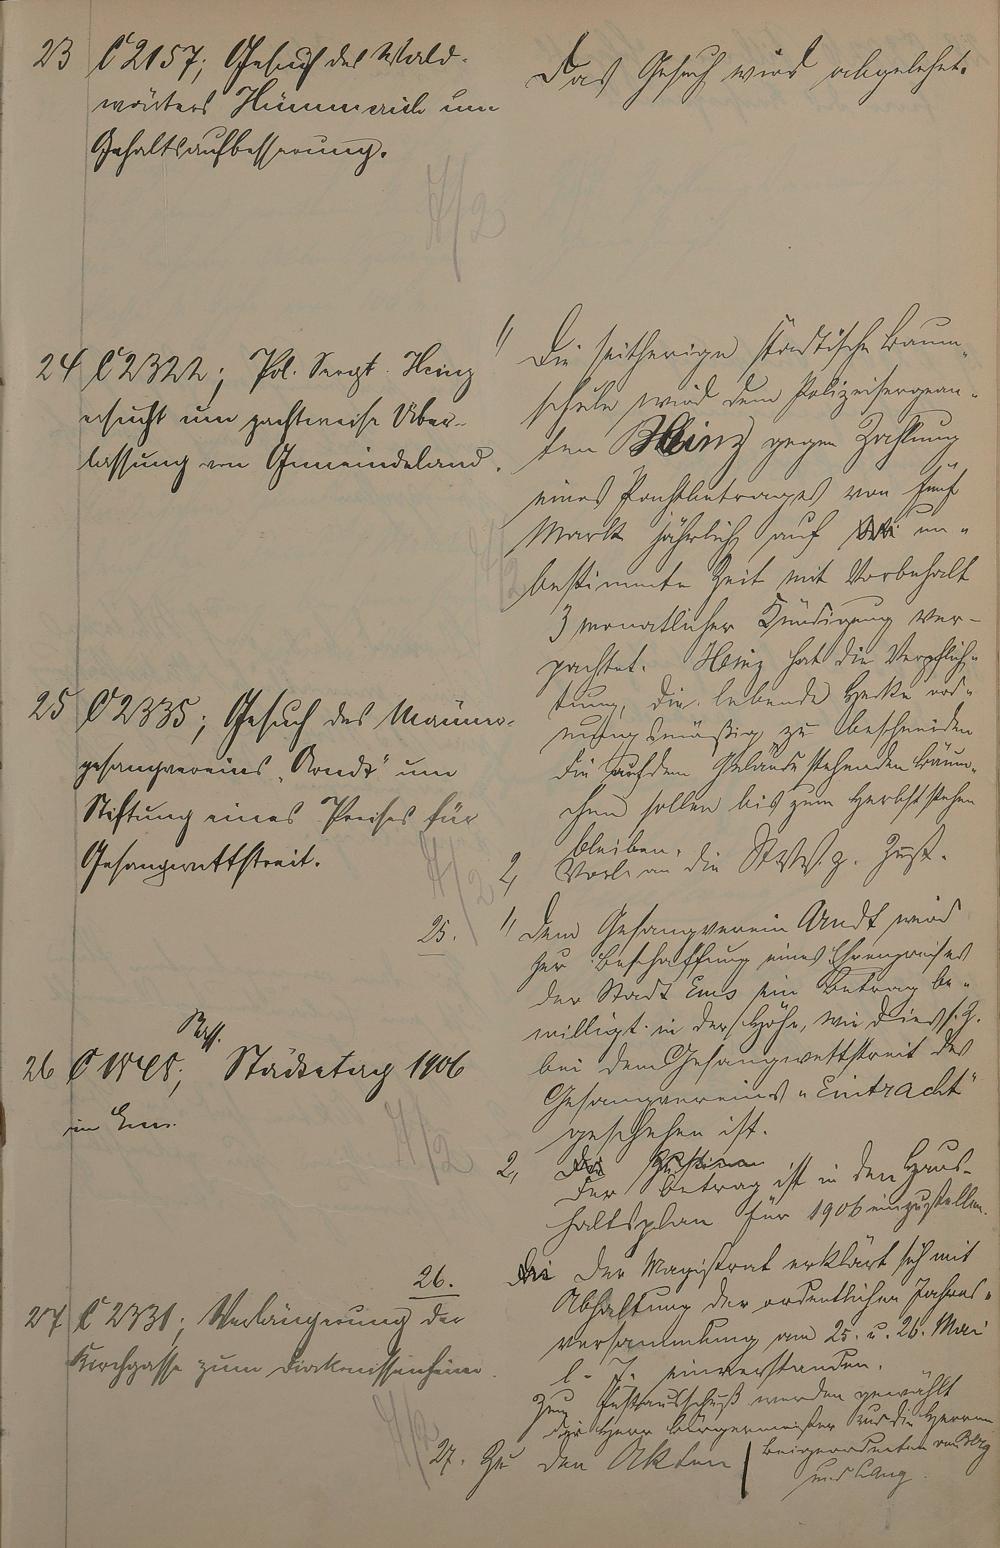 23 C 2157; Gesuch des Wald-
wärters Hümmerich um
Gehaltsaufbesserung.
Das Gesuch wird abgelehnt.
24 C 2322; Pol. Sergt. Heinz
ersucht um pachtweise Über-
lassung von Gemeindeland.
1) Die seitherige städtische Baum-
schule wird dem Polizeisergean-
ten Heinz gegen Zahlung
eines Pachtbetrages von fünf
Mark jährlich auf un-
bestimmte Zeit mit Vorbehalt
3 monatlicher Kündigung ver-
pachtet. Heinz hat die Verpflich-
tung, die lebende Hecke ord-
nungsmäßig zu beschneiden
Die auf dem Gelände stehenden Bäum-
chen sollen bis zum Herbst stehen
bleiben.
2, Vorl. an die St.V.V. z. Zust.
25 C 2335; Gesuch des Männer-
gesangvereins „Arndt" um
Stiftung eines Preises für
Gesangwettstreit.
25. 1) Dem Gesangverein Arndt wird
zur Beschaffung eines Ehrenpreises
der Stadt Ems ein Betrag be-
willigt in der Höhe, wie dies s. Z.
bei dem Gesangwettstreit des
Gesangvereins „Eintracht"
geschehen ist.
2, Der Betrag ist in den Haus-
haltsplan für 1906 einzustellen.
26 Nass. Städtetag 1906
in Ems.
26. Der Magistrat erklärt sich mit
Abhaltung der ordentlichen Jahres-
versammlung am 25. u. 26. Mai
l. J. einverstanden.
Zum Festausschuß werden gewählt
der Herr Bürgermeister und die Herren
Beigeordneten
und Lang.
27 C 2331; Verlängerung der
Kirchgasse zum Diakonissenheim.
27. Zu den Akten